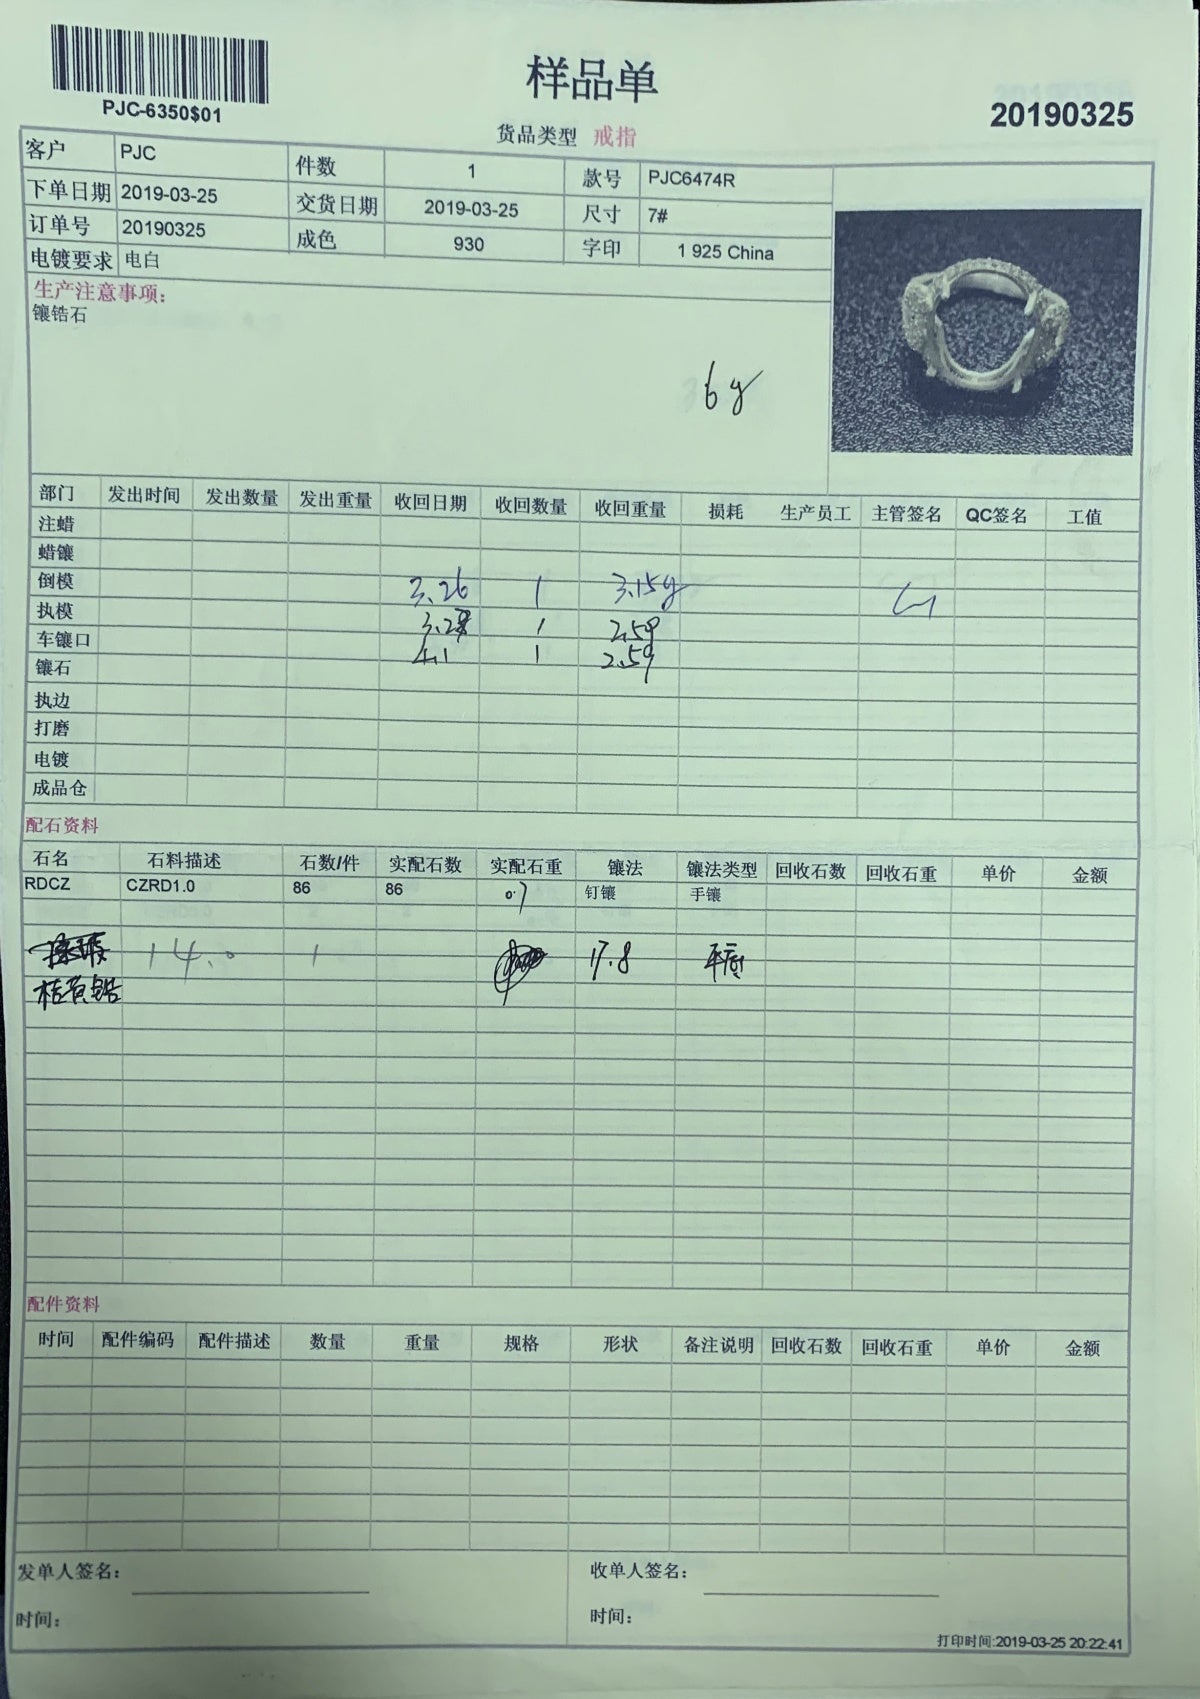 样品单
PJC-6350$01
20190325
货品类型 戒指
客户 PJC 件数 1 款号 PJC6474R
下单日期 2019-03-25 交货日期 2019-03-25 尺寸 7#
订单号 20190325 成色 930 字印 1 925 China
电镀要求 电白
生产注意事项：
镶锆石
6g
部门 发出时间 发出数量 发出重量 收回日期 收回数量 收回重量 损耗 生产员工 主管签名 QC签名 工值
注蜡
蜡镶
倒模 3.26 1 3.15g
执模 3.28 1 2.59
车镶口 4.1 1 2.59
镶石
执边
打磨
电镀
成品仓
配石资料
石名 石料描述 石数/件 实配石数 实配石重 镶法 镶法类型 回收石数 回收石重 单价 金额
RDCZ CZRD1.0 86 86 0.7 钉镶 手镶
14.0 1 17.8
桔黄锆
配件资料
时间 配件编码 配件描述 数量 重量 规格 形状 备注说明 回收石数 回收石重 单价 金额
发单人签名： 收单人签名：
时间： 时间：
打印时间:2019-03-25 20:22:41